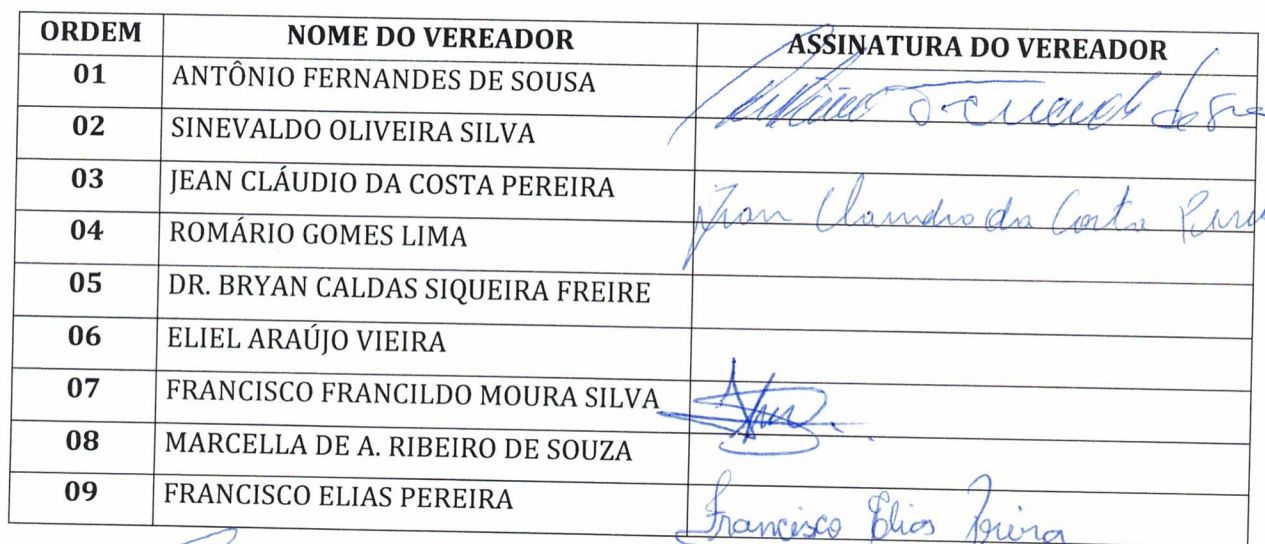 ORDEM NOME DO VEREADOR ASSINATURA DO VEREADOR
01 ANTÔNIO FERNANDES DE SOUSA Antônio
02 SINEVALDO OLIVEIRA SILVA
03 JEAN CLÁUDIO DA COSTA PEREIRA Jean Claudio da Costa
04 ROMÁRIO GOMES LIMA
05 DR. BRYAN CALDAS SIQUEIRA FREIRE
06 ELIEL ARAÚJO VIEIRA
07 FRANCISCO FRANCILDO MOURA SILVA
08 MARCELLA DE A. RIBEIRO DE SOUZA
09 FRANCISCO ELIAS PEREIRA Francisco Elias Pereira